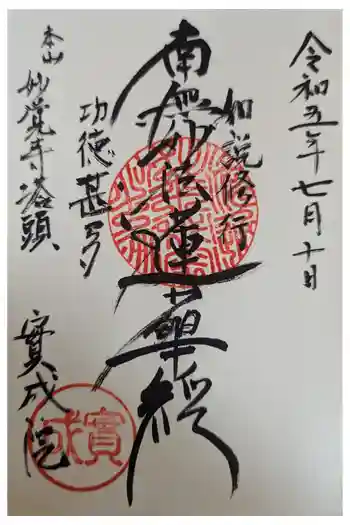 令和五年七月十日
如説修行
南無妙法蓮華経
功徳甚多
本山
妙覚寺塔頭
實成院
實成